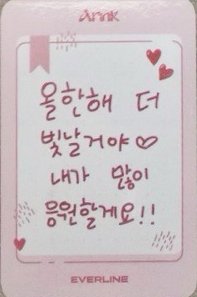 Apink
올한해 더
빛날거야♡
내가 많이
응원할게요!!
EVERLINE